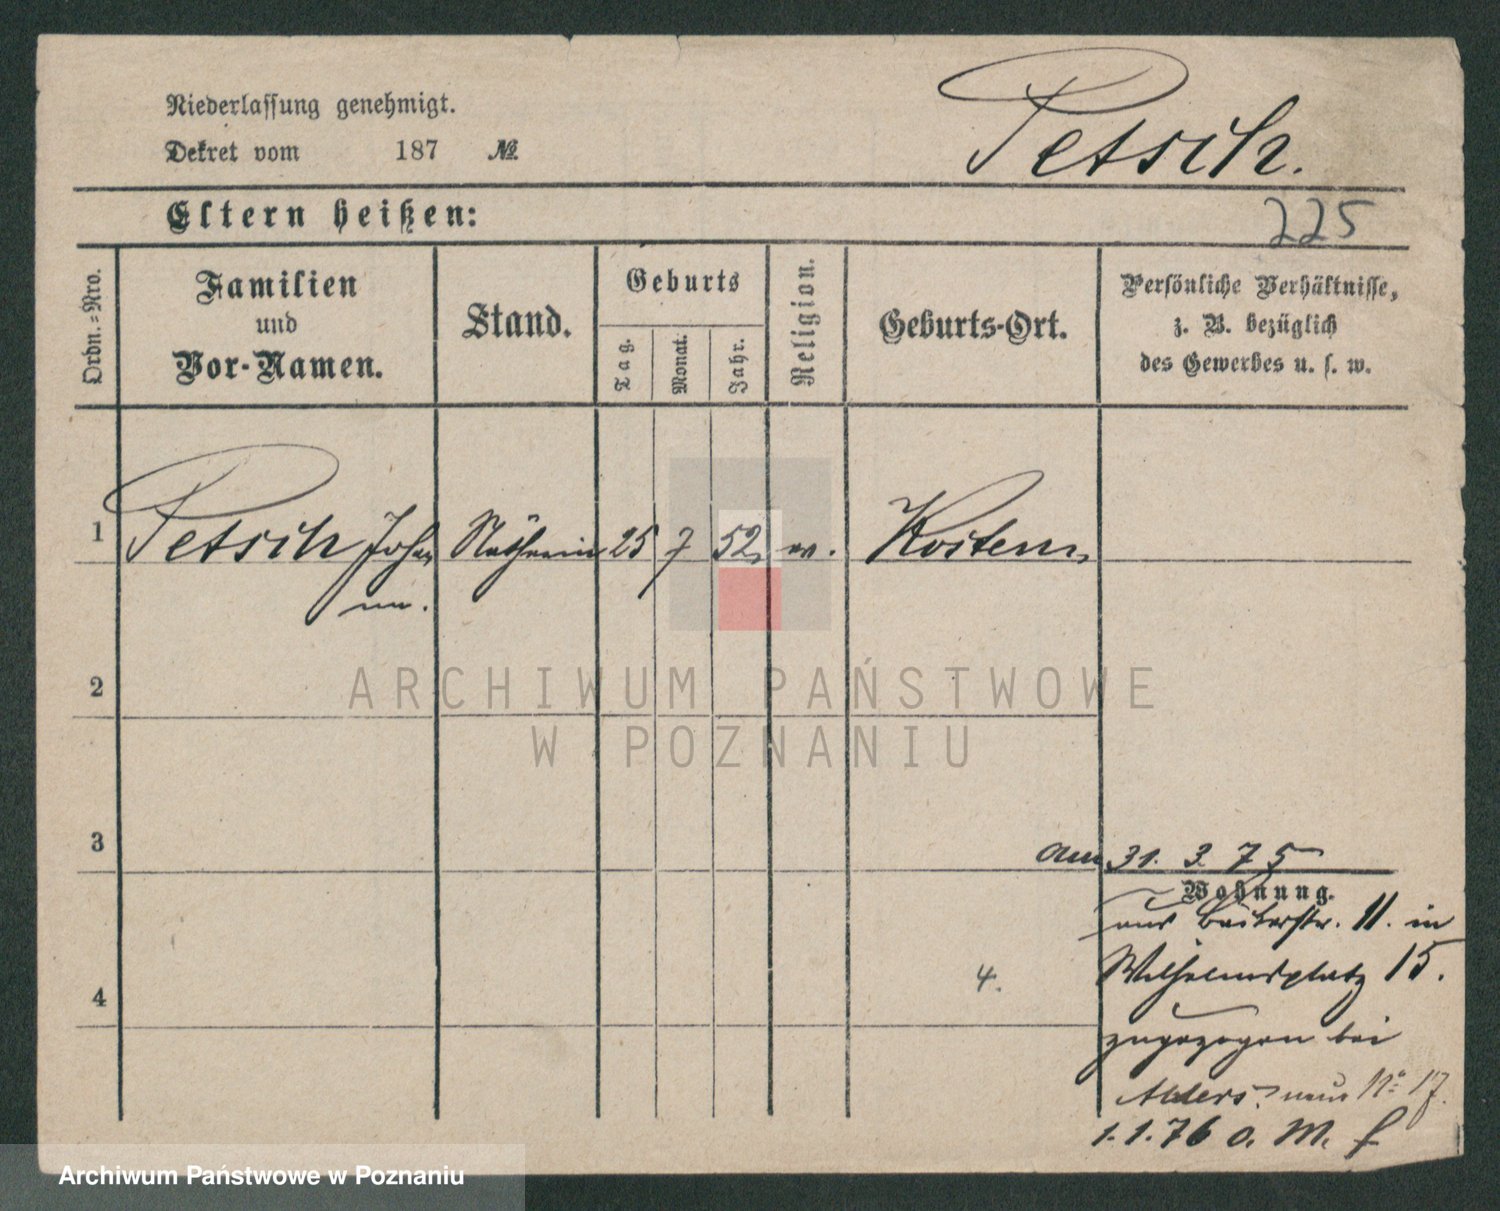 Niederlassung genehmigt.
Dekret vom 187 №
Petsch.
Eltern heißen:
225
Ordn.=Nro.
Familien
und
Vor-Namen.
Stand.
Geburts
Tag.
Monat.
Jahr.
Religion.
Geburts-Ort.
Persönliche Verhältnisse,
z. B. bezüglich
des Gewerbes u. s. w.
1 Petsch Johan Näherin 25 7 52 Kosten
na.
2
ARCHIWUM PAŃSTWOWE
W POZNANIU
3
am 31. 3. 75
Wohnung.
aus Bäckerstr. 11. in
4 4. Wilhelmsplatz 15.
zugezogen bei
neu No 17.
1. 1. 76 o. M. f
Archiwum Państwowe w Poznaniu